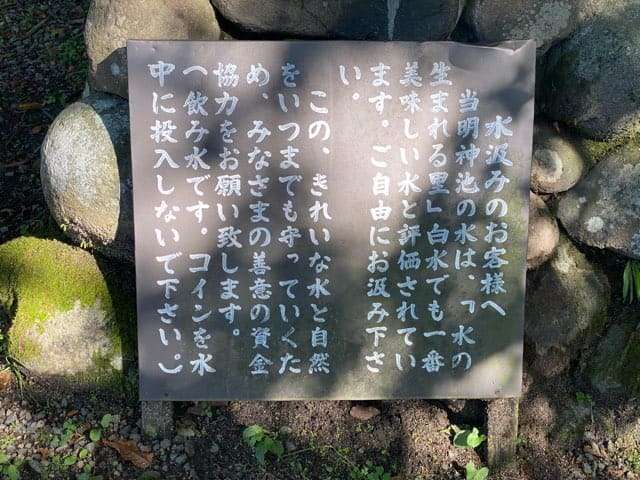 水汲みのお客様へ
当明神池の水は、「水の
生まれる里」白水でも一番
美味しい水と評価されてい
ます。ご自由にお汲み下さ
い。
この、きれいな水と自然
をいつまでも守っていくた
め、みなさまの善意の資金
協力をお願い致します。
へ飲み水です。コインを水
中に投入しないで下さい。)